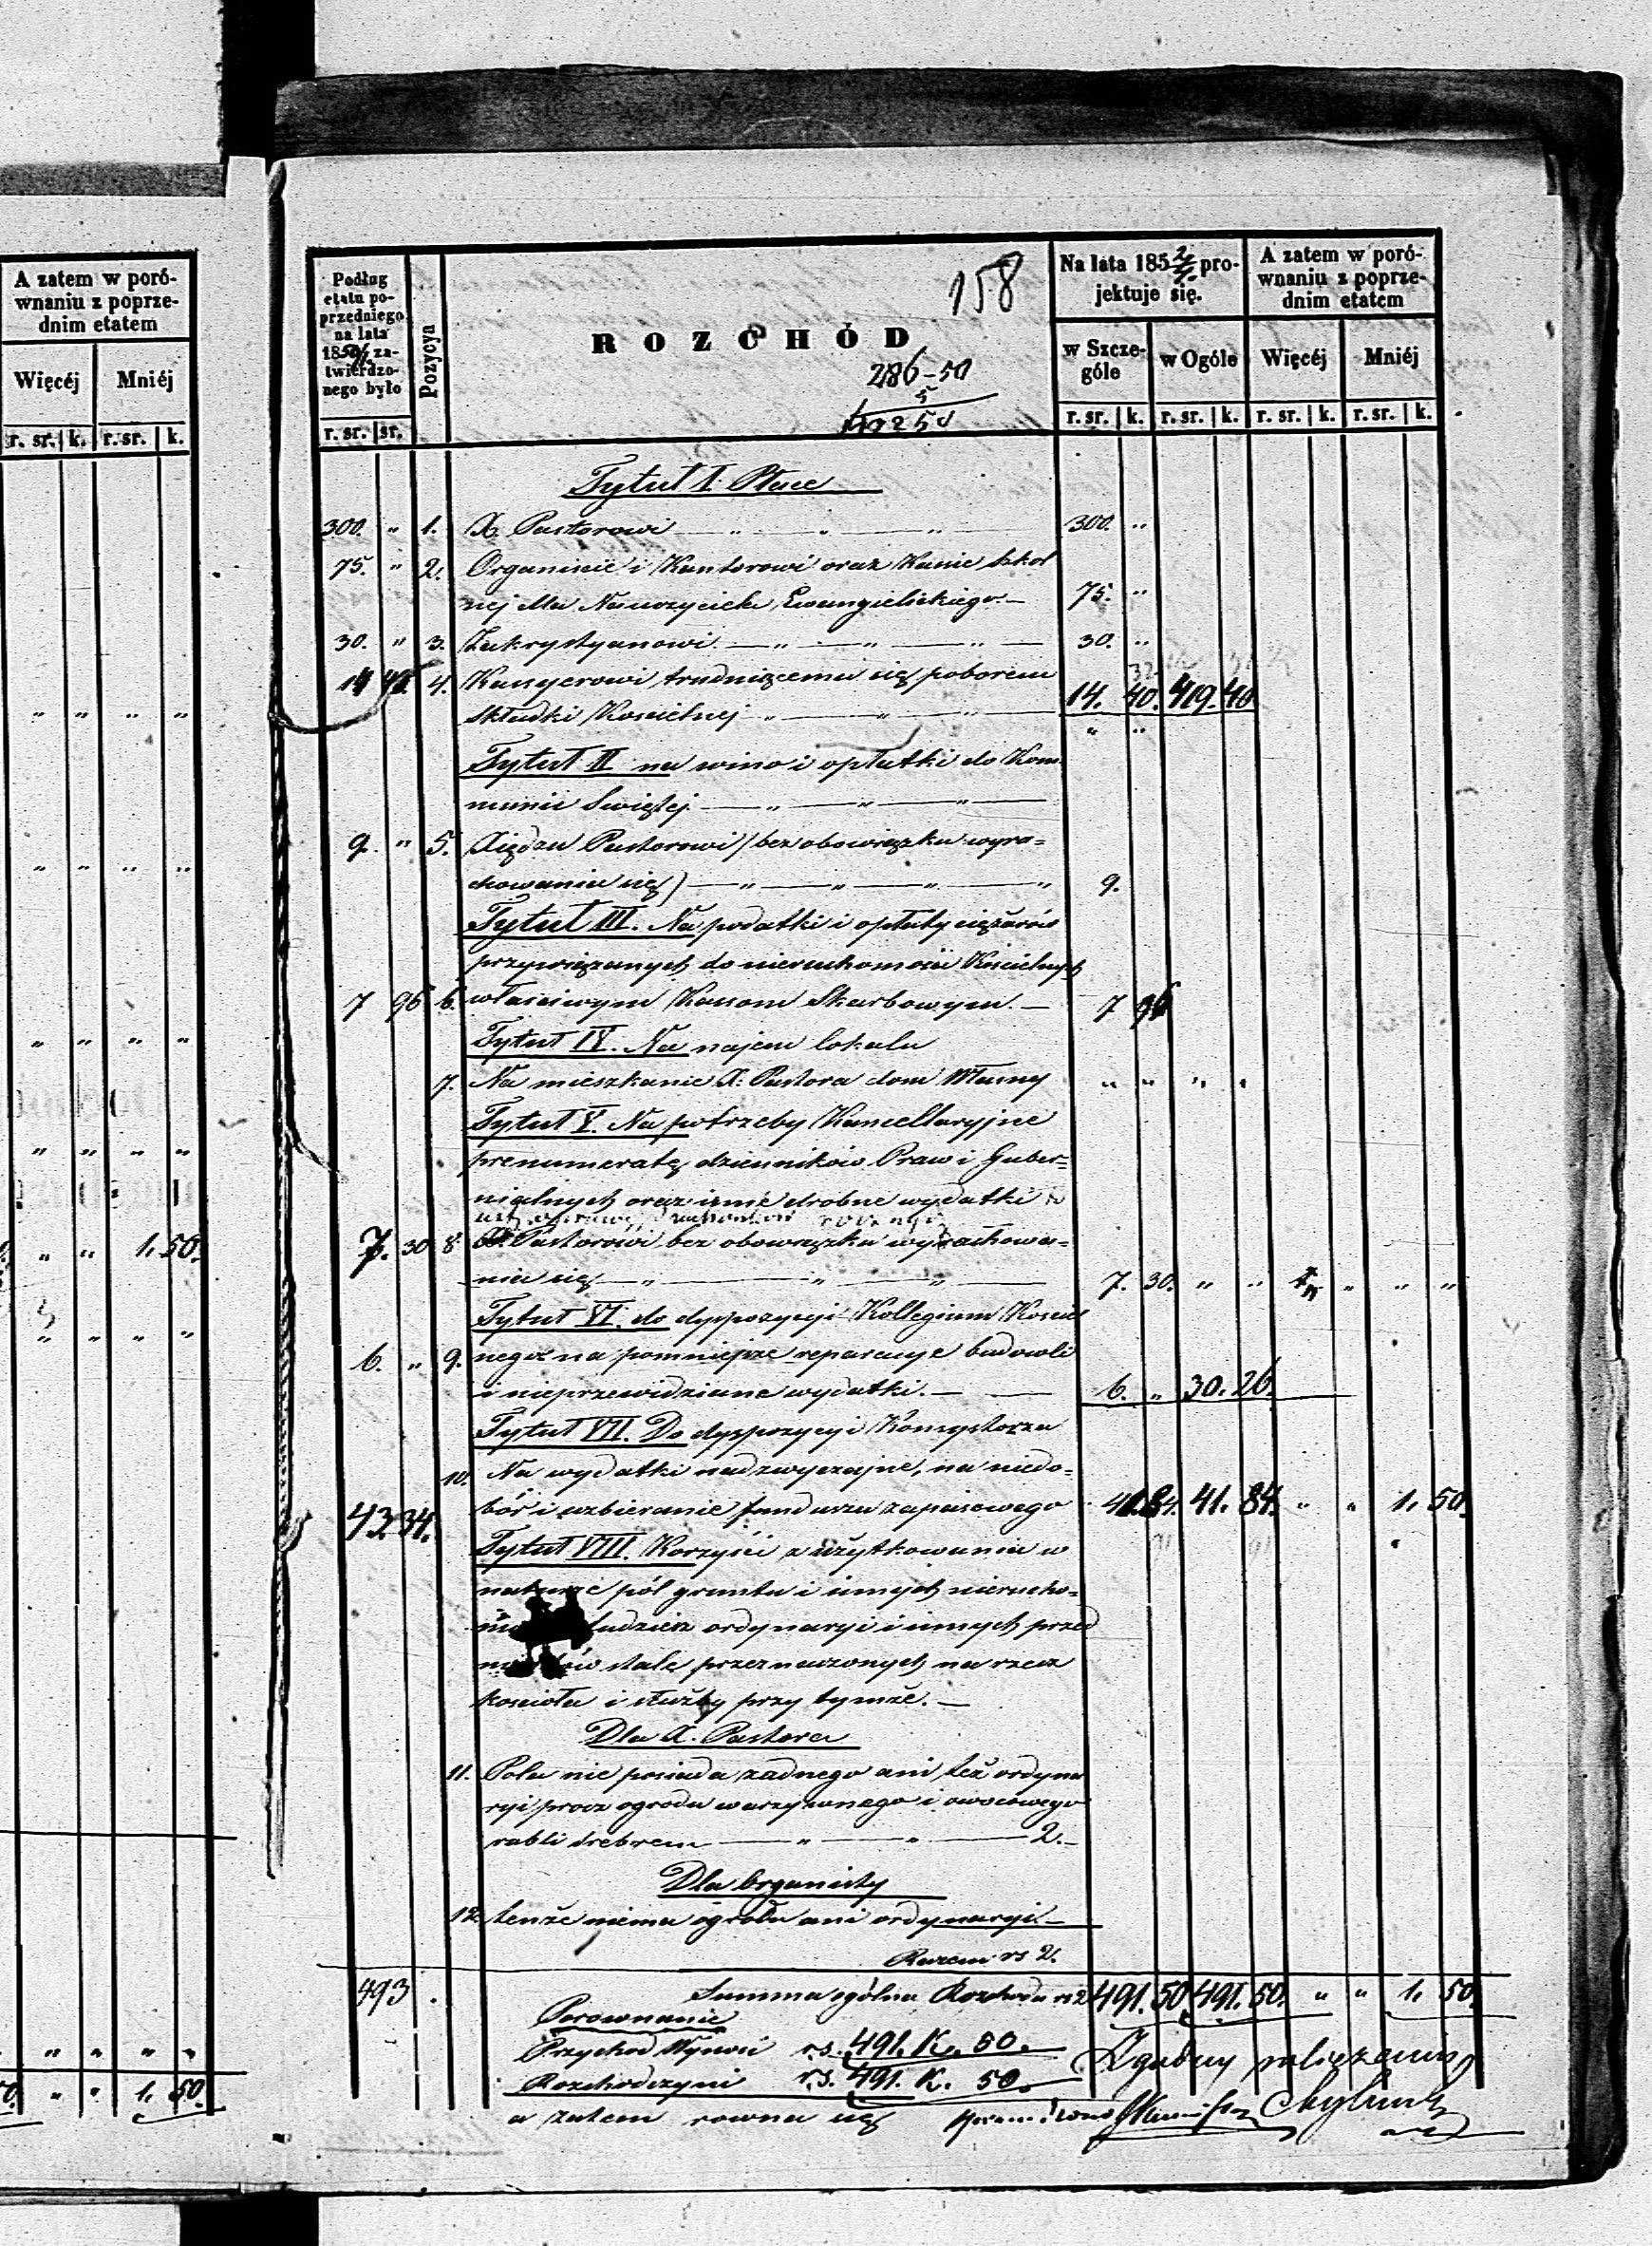 A zatem w poró-
wnaniu z poprze-
dnim etatem
Więcéj Mniéj
r. sr. k. r. sr. k.
" " " "
" " " "
" " " "
" " " "
" " 1. 50.
" " " "
" " " "
" " 1. 50.
Podług
etatu po-
przedniego
na lata
185 za-
twierdzo-
nego było
r. sr. sr.
Pozycya
158
ROZCHÓD
286-50
5
Na lata 185 2/4 pro-
jektuje się.
w Szcze-
góle
w Ogóle
r. sr. k. r. sr. k.
A zatem w poró-
wnaniu z poprze-
dnim etatem
Więcéj Mniéj
r. sr. k. r. sr. k.
Tytuł I. Płace
300. " 1. X. Pastorowi 300. "
75. " 2. Organiście i Kantorowi oraz Kasie Szkol
nej dla Nauczyciela Ewangielickiego 75. "
30. " 3. Zakrystyanowi 30. "
14 4. Kassyerowi trudniącemu się poborem
składki Kościelnej 14. 40. 419. 40
Tytuł II na wino i opłatki do Kom
munii Świętej
9. " 5. Xiędzu Pastorowi (bez obowiązku wyra=
chowania się) 9.
Tytuł III. Na podatki i opłaty ciężarów
przywiązanych do nieruchomości Kościelnych
7 96 6. właściwym Kassom Skarbowym. 7 96
Tytuł IV. Na najem lokalu
7. Na mieszkanie X. Pastora dom Własny " " " "
Tytuł V. Na potrzeby Kancellaryjne
prenumeratę dzienników Praw i Guber=
nialnych oraz inne drobne wydatki
7. 30 8 X. Pastorowi bez obowiązku wyrachowa=
nia się 7. 30. " " " " "
Tytuł VI. do dyspozycyi Kollegium Kościel
6. " 9. nego na pomniejsze reparacye budowli
i nieprzewidziane wydatki. 6. " 30. 26.
Tytuł VII. Do dyspozycyi Konsystorza
10. Na wydatki nadzwyczajne, na niedo=
43. 34. bór i uzbieranie funduszu zapasowego 41. 84. 41. 84. " " 1. 50.
Tytuł VIII. Korzyści z użytkowania w
naturze pół gruntu i innych nierucho=
tudzież ordynaryi i innych przed
stale przeznaczonych na rzecz
kościoła i służby przy tymże.
Dla X. Pastora
11. Pola nie posiada żadnego ani też ordyna
ryi procz ogrodu warzywnego i owocowego
rubli srebrem 2.
Dla Organisty
12. tenże niema ogrodu ani ordynaryi
Razem rs 2.
493 . Summa ogólna Rozchodu rs 491. 50 491. 50. " " 1. 50.
Porownanie
Przychod Wynosi rs. 491. K. 50.
Rozchod czyni rs. 491. K. 50.
a zatem rowna się